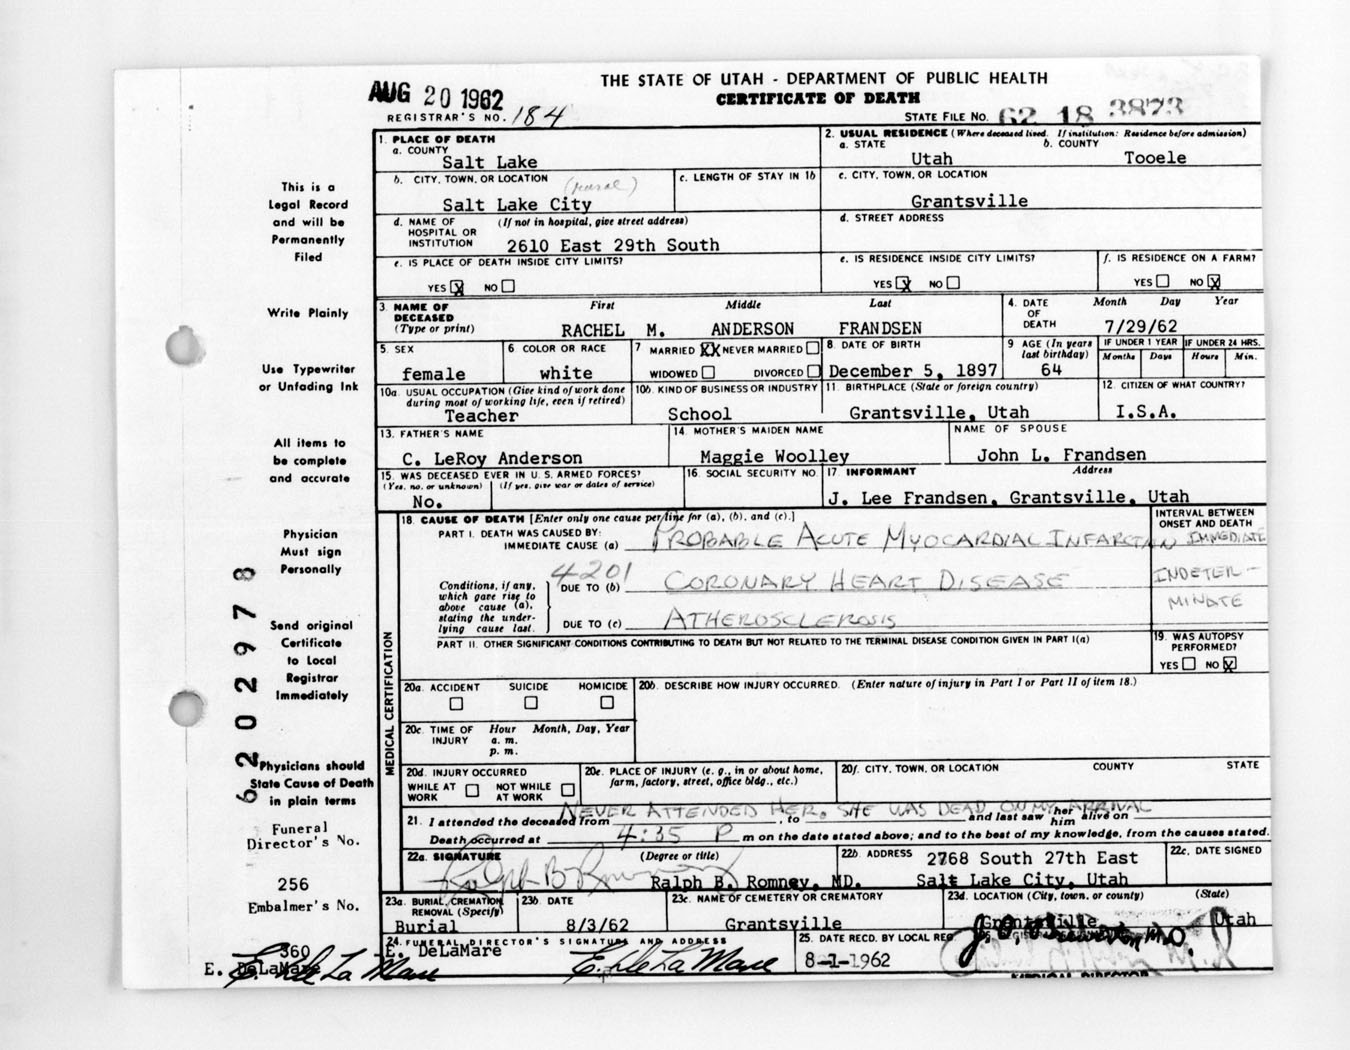 THE STATE OF UTAH - DEPARTMENT OF PUBLIC HEALTH
AUG 20 1962
CERTIFICATE OF DEATH
REGISTRAR'S NO. 184
STATE FILE NO. 62 18 3873
This is a
Legal Record
and will be
Permanently
Filed
Write Plainly
Use Typewriter
or Unfading Ink
All items to
be complete
and accurate
Physician
Must sign
Personally
Send original
Certificate
to Local
Registrar
Immediately
Physicians should
State Cause of Death
in plain terms
Funeral
Director's No.
256
Embalmer's No.
360
E. DeLaMare
E. DeLaMare
6202978
1. PLACE OF DEATH
a. COUNTY
Salt Lake
2. USUAL RESIDENCE (Where deceased lived. If institution: Residence before admission)
a. STATE b. COUNTY
Utah Tooele
b. CITY, TOWN, OR LOCATION (rural)
Salt Lake City
c. LENGTH OF STAY IN 1b
c. CITY, TOWN, OR LOCATION
Grantsville
d. NAME OF HOSPITAL OR INSTITUTION (If not in hospital, give street address)
2610 East 29th South
d. STREET ADDRESS
e. IS PLACE OF DEATH INSIDE CITY LIMITS?
YES X NO
e. IS RESIDENCE INSIDE CITY LIMITS?
YES X NO
f. IS RESIDENCE ON A FARM?
YES NO X
3. NAME OF DECEASED (Type or print)
First Middle Last
RACHEL M. ANDERSON FRANDSEN
4. DATE OF DEATH Month Day Year
7/29/62
5. SEX
female
6 COLOR OR RACE
white
7 MARRIED XX NEVER MARRIED
WIDOWED DIVORCED
8. DATE OF BIRTH
December 5, 1897
9 AGE (In years last birthday)
64
IF UNDER 1 YEAR IF UNDER 24 HRS.
Months Days Hours Min.
10a. USUAL OCCUPATION (Give kind of work done during most of working life, even if retired)
Teacher
10b. KIND OF BUSINESS OR INDUSTRY
School
11. BIRTHPLACE (State or foreign country)
Grantsville, Utah
12. CITIZEN OF WHAT COUNTRY?
I.S.A.
13. FATHER'S NAME
C. LeRoy Anderson
14. MOTHER'S MAIDEN NAME
Maggie Woolley
NAME OF SPOUSE
John L. Frandsen
15. WAS DECEASED EVER IN U. S. ARMED FORCES?
(Yes, no, or unknown) (If yes, give war or dates of service)
No.
16. SOCIAL SECURITY NO.
17 INFORMANT Address
J. Lee Frandsen, Grantsville, Utah
MEDICAL CERTIFICATION
18. CAUSE OF DEATH [Enter only one cause per line for (a), (b), and (c).]
INTERVAL BETWEEN ONSET AND DEATH
PART I. DEATH WAS CAUSED BY:
IMMEDIATE CAUSE (a) PROBABLE ACUTE MYOCARDIAL INFARCTION IMMEDIATE
4201
Conditions, if any, which gave rise to above cause (a), stating the underlying cause last.
DUE TO (b) CORONARY HEART DISEASE INDETER-
MINATE
DUE TO (c) ATHEROSCLEROSIS
PART II. OTHER SIGNIFICANT CONDITIONS CONTRIBUTING TO DEATH BUT NOT RELATED TO THE TERMINAL DISEASE CONDITION GIVEN IN PART I(a)
19. WAS AUTOPSY PERFORMED?
YES NO X
20a. ACCIDENT SUICIDE HOMICIDE
20b. DESCRIBE HOW INJURY OCCURRED. (Enter nature of injury in Part I or Part II of item 18.)
20c. TIME OF INJURY Hour Month, Day, Year
a. m.
p. m.
20d. INJURY OCCURRED
WHILE AT WORK NOT WHILE AT WORK
20e. PLACE OF INJURY (e. g., in or about home, farm, factory, street, office bldg., etc.)
20f. CITY, TOWN, OR LOCATION COUNTY STATE
NEVER ATTENDED HER. SHE WAS DEAD ON MY ARRIVAL
21. I attended the deceased from , to and last saw her him alive on
Death occurred at 4:35 P m on the date stated above; and to the best of my knowledge, from the causes stated.
22a. SIGNATURE (Degree or title)
Ralph B Romney
Ralph B. Romney, MD.
22b. ADDRESS 2768 South 27th East
Salt Lake City, Utah
22c. DATE SIGNED
23a. BURIAL, CREMATION, REMOVAL (Specify)
Burial
23b. DATE
8/3/62
23c. NAME OF CEMETERY OR CREMATORY
Grantsville
23d. LOCATION (City, town, or county) (State)
Grantsville Utah
24. FUNERAL DIRECTOR'S SIGNATURE AND ADDRESS
E. DeLaMare
E. DeLaMare
25. DATE RECD. BY LOCAL REG.
8-1-1962
MEDICAL DIRECTOR